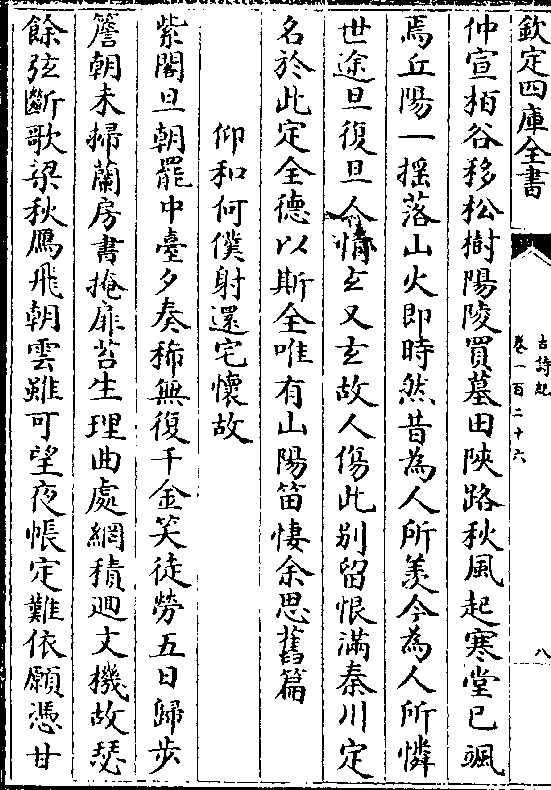 欽定四庫全書
古詩紀
卷一百二十六
八
仲宣栢谷移松樹陽陵買墓田陝路秋風起寒堂已颯
焉丘陽一揺落山火即時然昔為人所羨今為人所憐
世途旦復旦人情玄又玄故人傷此别留恨滿秦川定
名於此定全德以斯全唯有山陽笛悽余思舊篇
仰和何僕射還宅懷故
紫閣旦朝罷中臺夕奏稀無復千金笑徒勞五日歸步
簷朝未掃蘭房晝掩扉苔生理曲處網積迴文機故瑟
餘弦斷歌梁秋鴈飛朝雲雖可望夜帳定難依願憑甘